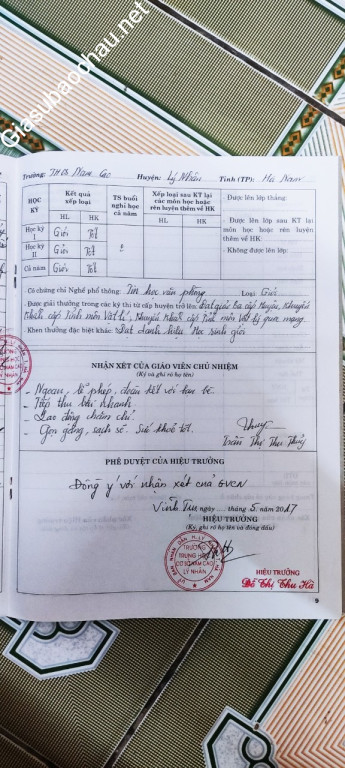 Giasubaochau.net
Trường: THCS Nam Cao Huyện: Lý Nhân Tỉnh (TP): Hà Nam
HỌC KỲ
Kết quả xếp loại
TS buổi nghỉ học cả năm
Xếp loại sau KT lại các môn học hoặc rèn luyện thêm về HK
- Được lên lớp thẳng:
HL HK HL HK
- Được lên lớp sau KT lại môn học hoặc rèn luyện thêm về HK:
- Không được lên lớp:
Học kỳ I Giỏi Tốt
Học kỳ II Giỏi Tốt
Cả năm Giỏi Tốt
- Có chứng chỉ Nghề phổ thông: Tin học văn phòng Loại: Giỏi
- Được giải thưởng trong các kỳ thi từ cấp huyện trở lên: Đạt giải Ba cấp Huyện, Khuyến
Khích cấp Tỉnh môn Vật lí, Khuyến Khích cấp Tỉnh môn Vật lý qua mạng
- Khen thưởng đặc biệt khác: Đạt danh hiệu Học sinh giỏi
NHẬN XÉT CỦA GIÁO VIÊN CHỦ NHIỆM
(Ký và ghi rõ họ tên)
- Ngoan, lễ phép, đoàn kết với bạn bè.
- Tiếp thu bài nhanh
- Lao động chăm chỉ.
- Gọn gàng, sạch sẽ. Sức khoẻ tốt.
Thuỷ
Trần Thị Thu Thuỷ
PHÊ DUYỆT CỦA HIỆU TRƯỞNG
Đồng ý với nhận xét của GVCN
Vĩnh Trụ, ngày ... tháng 5 năm 2017
HIỆU TRƯỞNG
(Ký, ghi rõ họ tên và đóng dấu)
TRƯỜNG
TRUNG HỌC
CƠ SỞ NAM CAO
LÝ NHÂN
HIỆU TRƯỞNG
Đỗ Thị Thu Hà
9